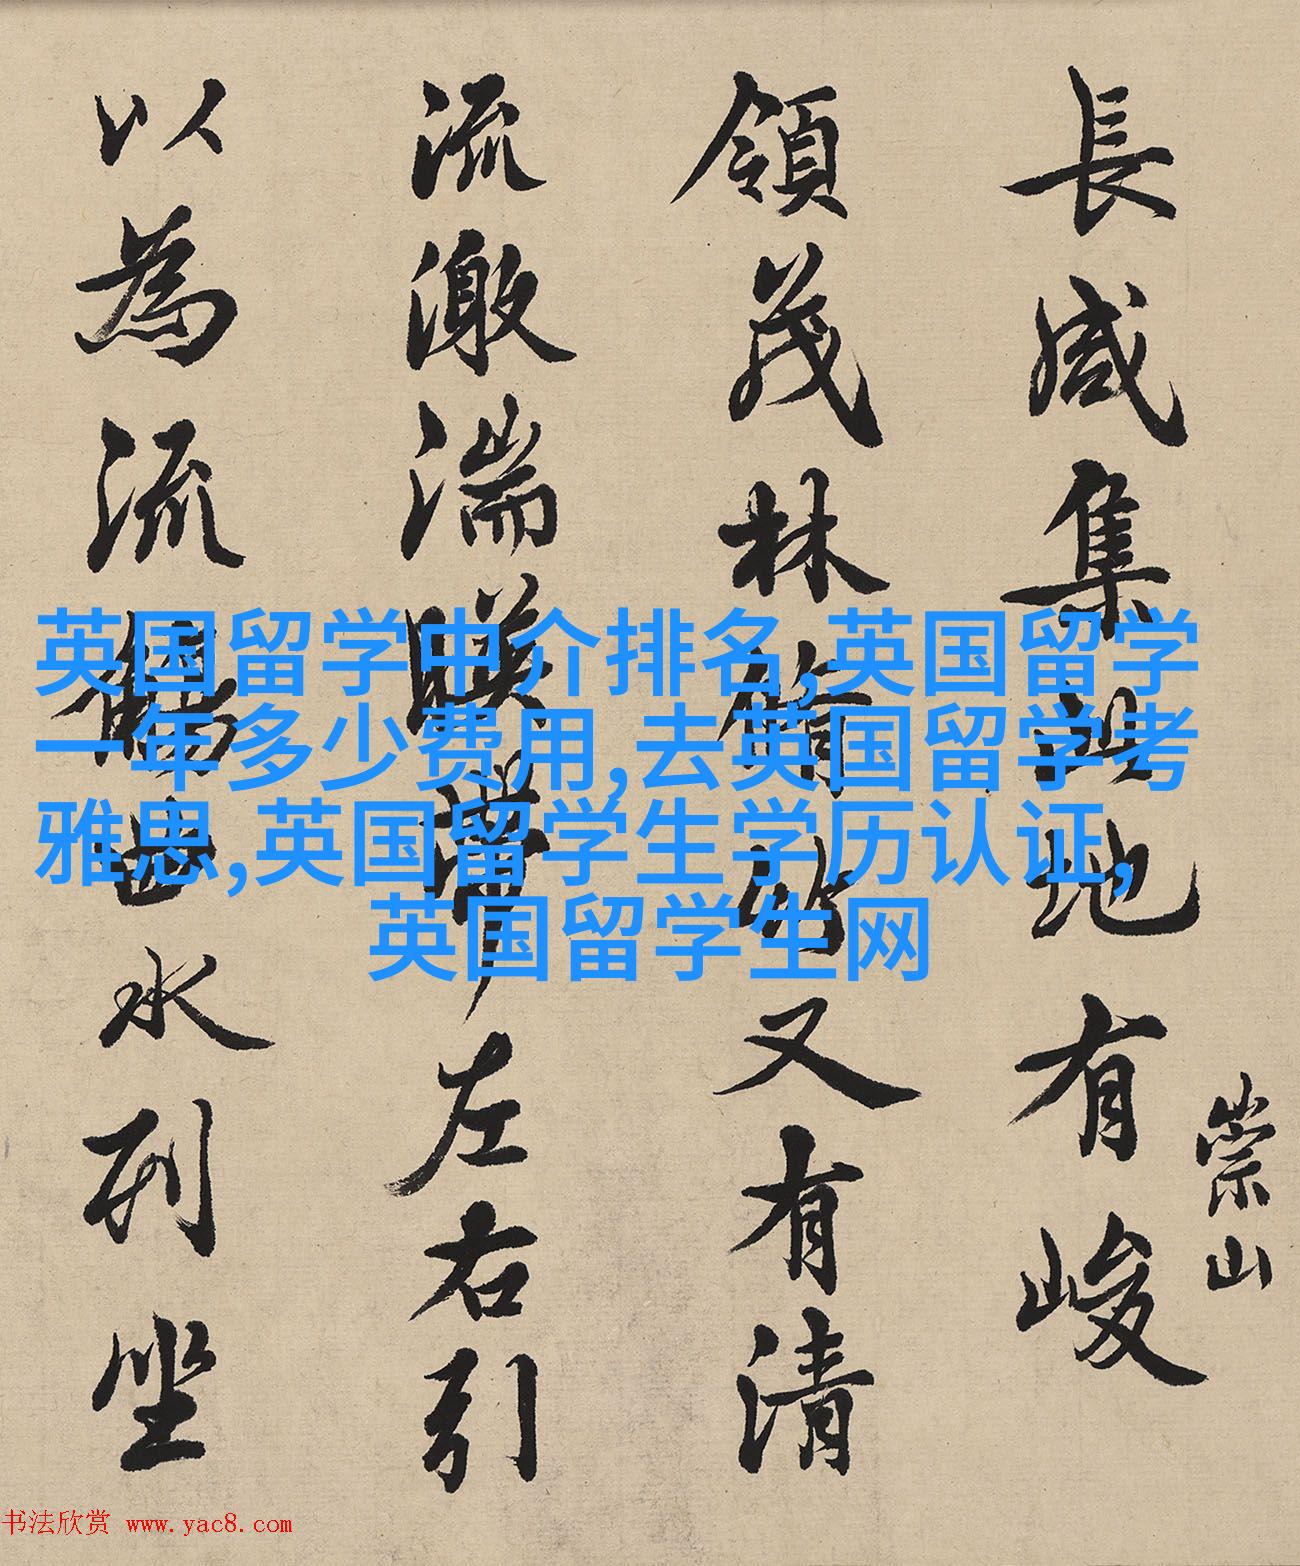 長咸集此地有峻
崇山
領茂林脩竹又有清
流激湍暎帶左右引
以為流觴曲水列坐
英国留学中介排名,英国留学
一年多少费用,去英国留学考
雅思,英国留学生学历认证,
英国留学生网
书法欣赏 www.yac8.com